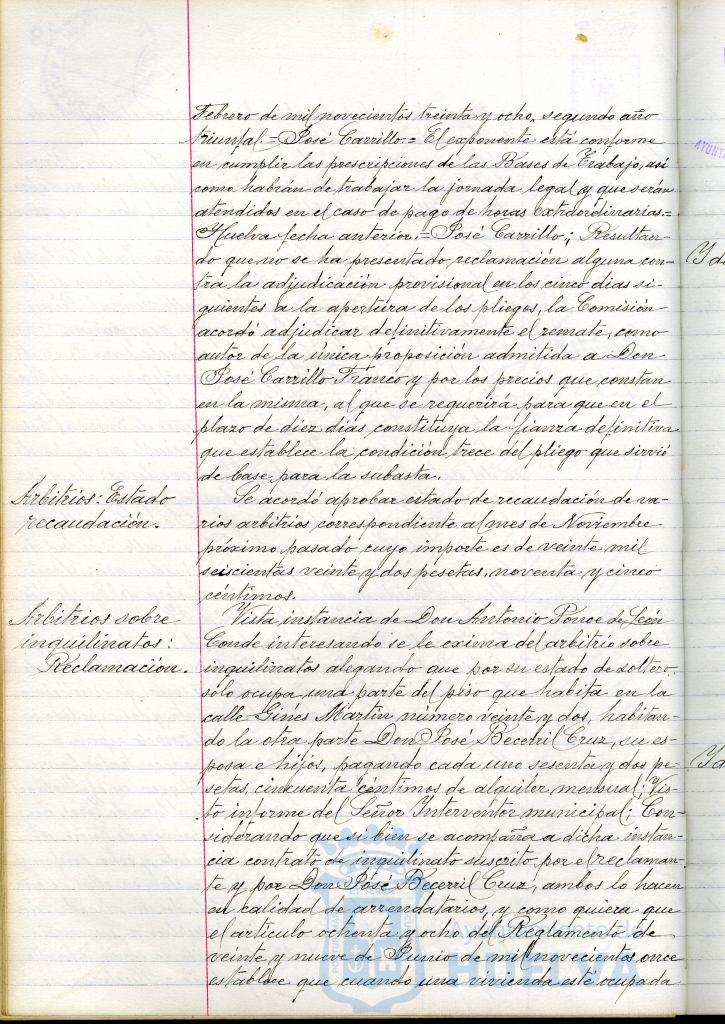 Febrero de mil novecientos treinta y ocho, segundo año
triunfal.= José Carrillo.= El exponente está conforme
en cumplir las prescripciones de las Bases de Trabajo, así
como habrán de trabajar la jornada legal y que serán
atendidos en el caso de pago de horas extraordinarias.=
Huelva fecha anterior.= José Carrillo; Resultan-
do que no se ha presentado reclamación alguna con-
tra la adjudicación provisional en los cinco dias si-
guientes a la apertura de los pliegos, la Comisión
acordó adjudicar definitivamente el remate, como
autor de la única proposición admitida a Don
José Carrillo Franco y por los precios que constan
en la misma, al que se requerirá para que en el
plazo de diez dias constituya la fianza definitiva
que establece la condición trece del pliego que sirvió
de base para la subasta.
Arbitrios: Estado
recaudación.
Se acordó aprobar estado de recaudación de va-
rios arbitrios correspondiente al mes de Noviembre
próximo pasado cuyo importe es de veinte mil
seiscientas veinte y dos pesetas, noventa y cinco
céntimos.
Arbitrios sobre
inquilinatos:
Reclamación.
Vista instancia de Don Antonio Ponce de León
Conde interesando se le exima del arbitrio sobre
inquilinatos alegando que por su estado de soltero
sólo ocupa una parte del piso que habita en la
calle Ginés Martín número veinte y dos, habitan-
do la otra parte Don José Becerril Cruz, su es-
posa e hijos, pagando cada uno sesenta y dos pe-
setas, cincuenta céntimos de alquiler mensual; Vis-
to informe del Señor Interventor municipal; Con-
siderando que si bien se acompaña a dicha instan-
cia contrato de inquilinato suscrito por el reclaman-
te y por Don José Becerril Cruz, ambos lo hacen
en calidad de arrendatarios, y como quiera que
el artículo ochenta y ocho del Reglamento de
veinte y nueve de Junio de mil novecientos once
establece que cuando una vivienda esté ocupada
Ayuntamiento de
HUELVA